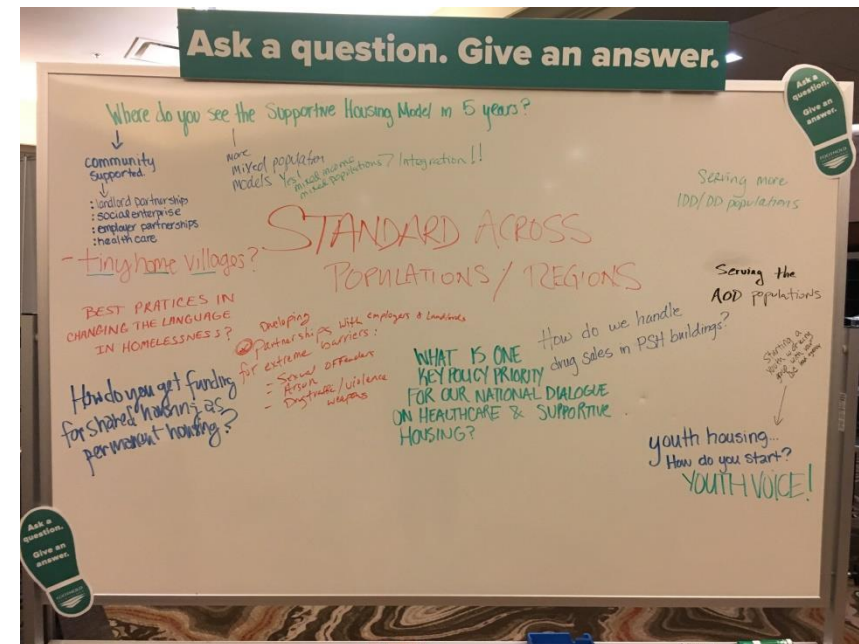 Ask a question. Give an answer.
Ask a
question.
Give an
answer.
Where do you see the Supportive Housing Model in 5 years?
community
supported
: landlord partnerships
: social enterprise
: employer partnerships
: health care
more
mixed population
models Yes! mixed income
mixed populations? Integration!!
Serving more
IDD/DD populations
- tiny home villages?
STANDARD ACROSS
POPULATIONS/REGIONS
Serving the
AOD populations
BEST PRATICES IN
CHANGING THE LANGUAGE
IN HOMELESSNESS?
Developing
partnerships with employers & landlords
for extreme barriers:
- Sexual offenders
- Arson
- Drug traffic/violence
weapons
How do we handle
drug sales in PSH buildings?
WHAT IS ONE
KEY POLICY PRIORITY
FOR OUR NATIONAL DIALOGUE
ON HEALTHCARE & SUPPORTIVE
HOUSING?
Starting a
youth
with your
How do you get funding
for shared housing as
permanent housing?
youth housing...
How do you start?
YOUTH VOICE!
Ask a
question.
Give an
answer.